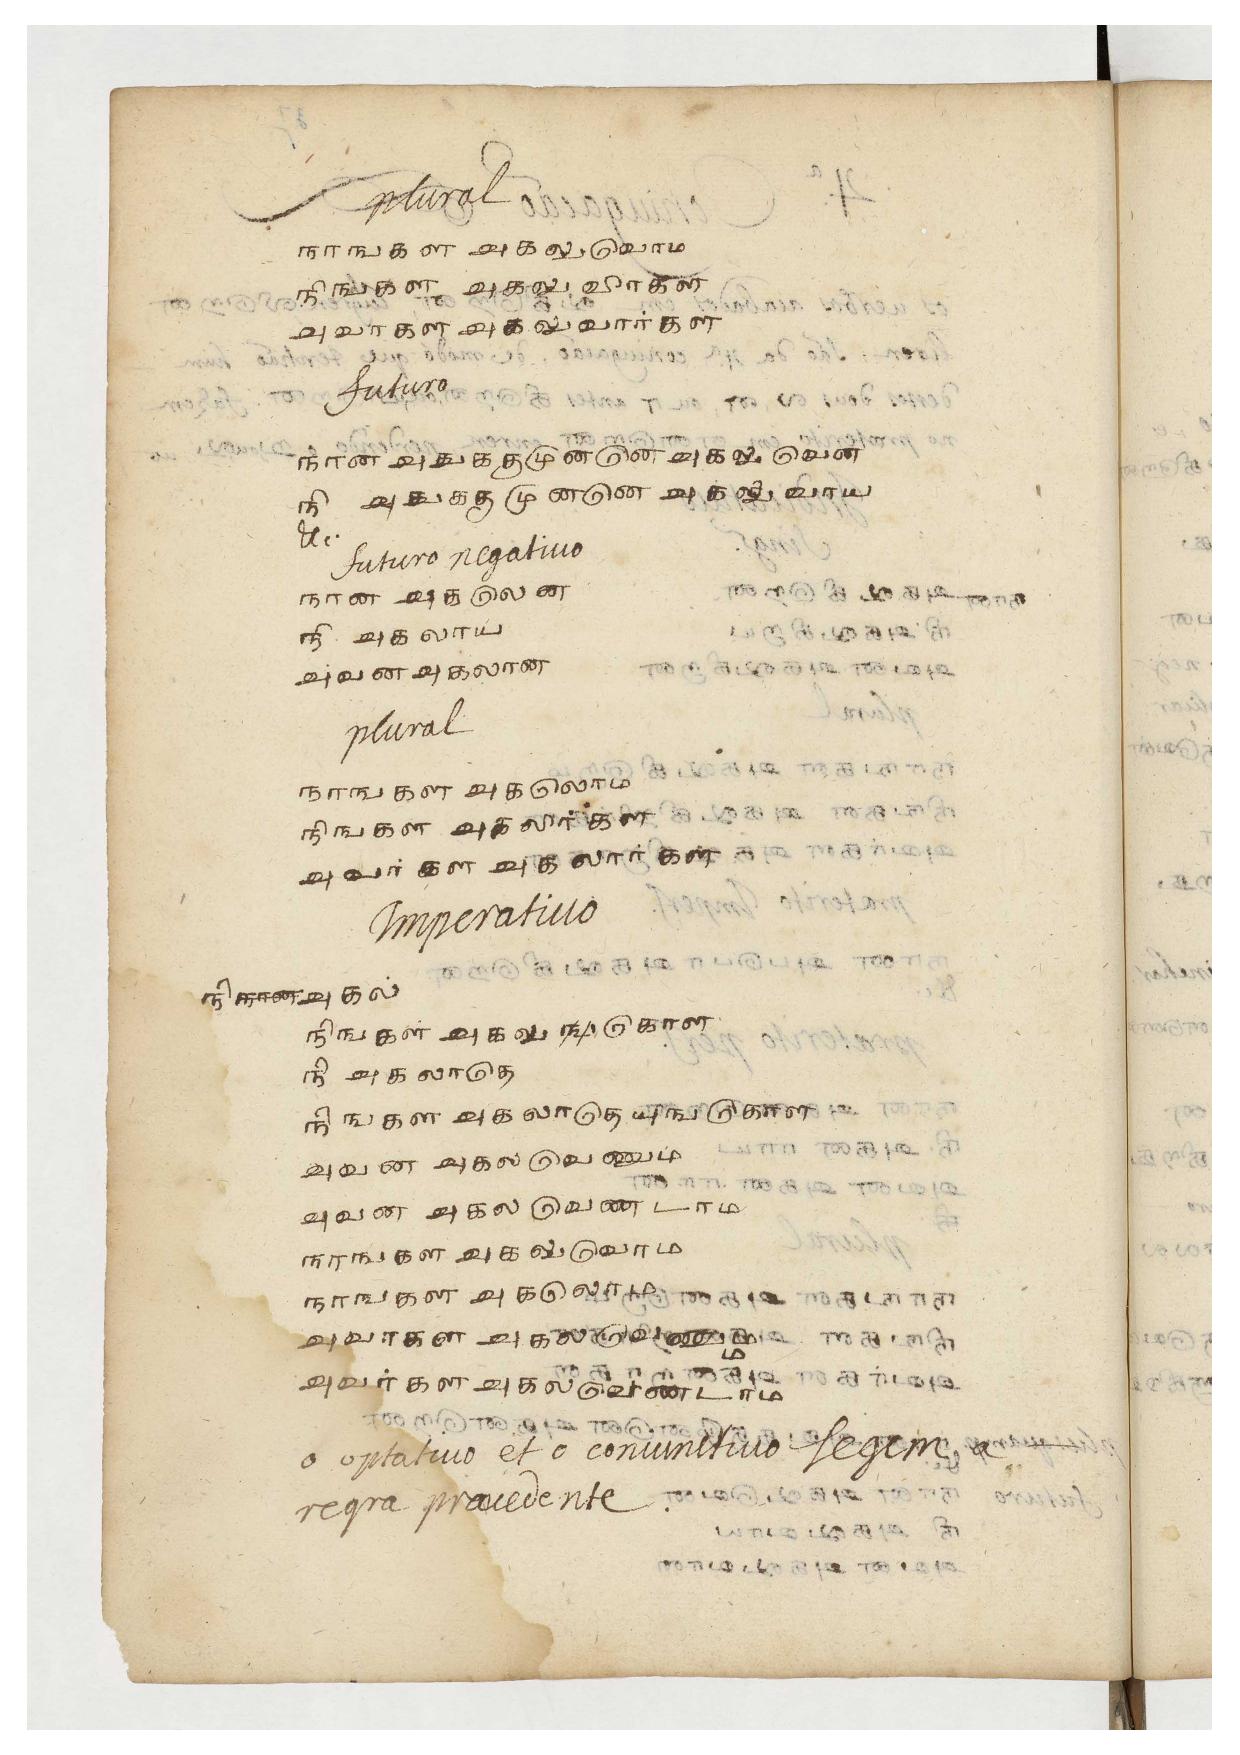 plural
நாஙகள அகலுடுவாம
நிஙகள அகலுவிாகள
அவாகள அகலுவார்கள
futuro
நான அவகதமுனடுன அகலுடுவன
நி அவகதமுனடுன அகலுவாய
&c.
futuro negatiuo
நான அகடுலன
நி அகலாய
அவன அகலான
plural
நாஙகள அகடுலாம
நிஙகள அகலிர்கள
அவர்கள அகலார்கள
Imperatiuo
நி அகல்
நிஙகள் அகலு டுகாள
நி அகலாடுத
நிஙகள அகலாடுதயுஙடுகாள
அவன அகலடுவணும்
அவன அகலடுவணடாம
நாஙகள அகலுடுவாம
நாஙகள அகடுலாம
அவாகள அகலடுவணும
அவர்கள அகலடுவணடாம
o optatiuo et o coniunctiuo segem a
regra pracedente.